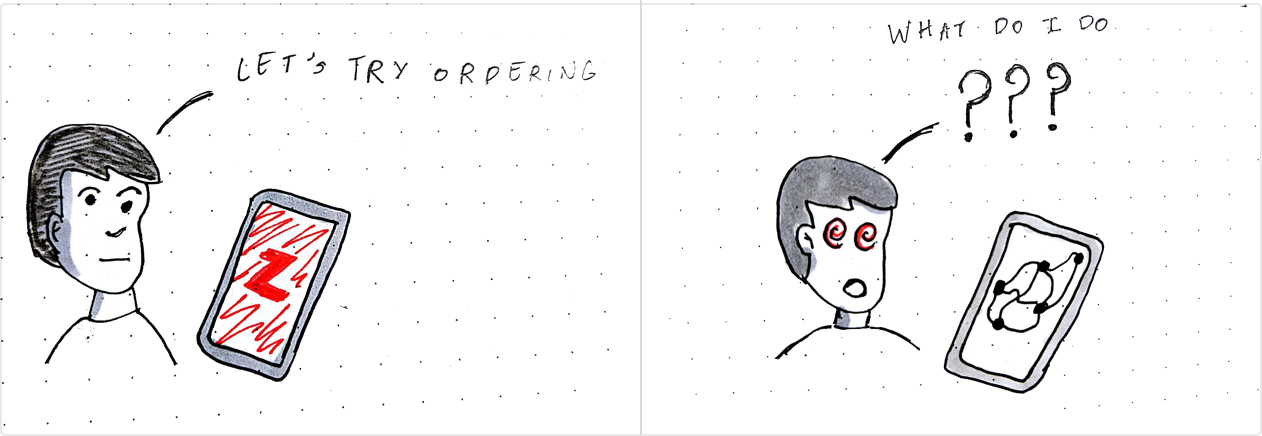 LET'S TRY ORDERING
Z
WHAT DO I DO
???